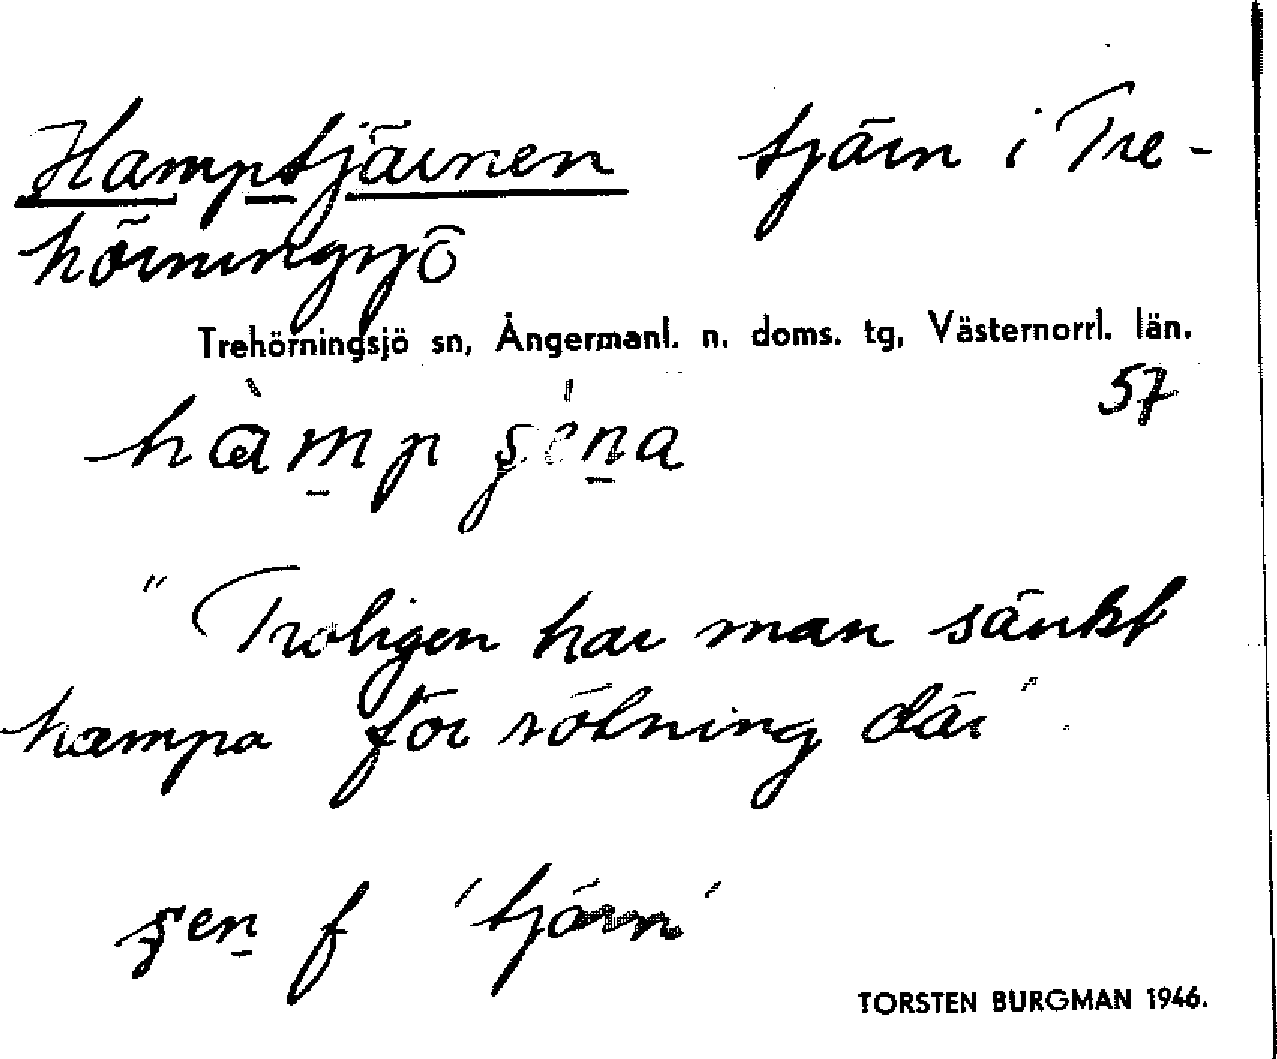 Hamptjärnen tjärn i Tre-
hörningsjö
Trehörningsjö sn, Ångermanl. n. doms. tg, Västernorrl. län.
57
hàmp
"Troligen har man sänkt
hampa för rötning där"
f 'tjärn'
TORSTEN BURGMAN 1946.